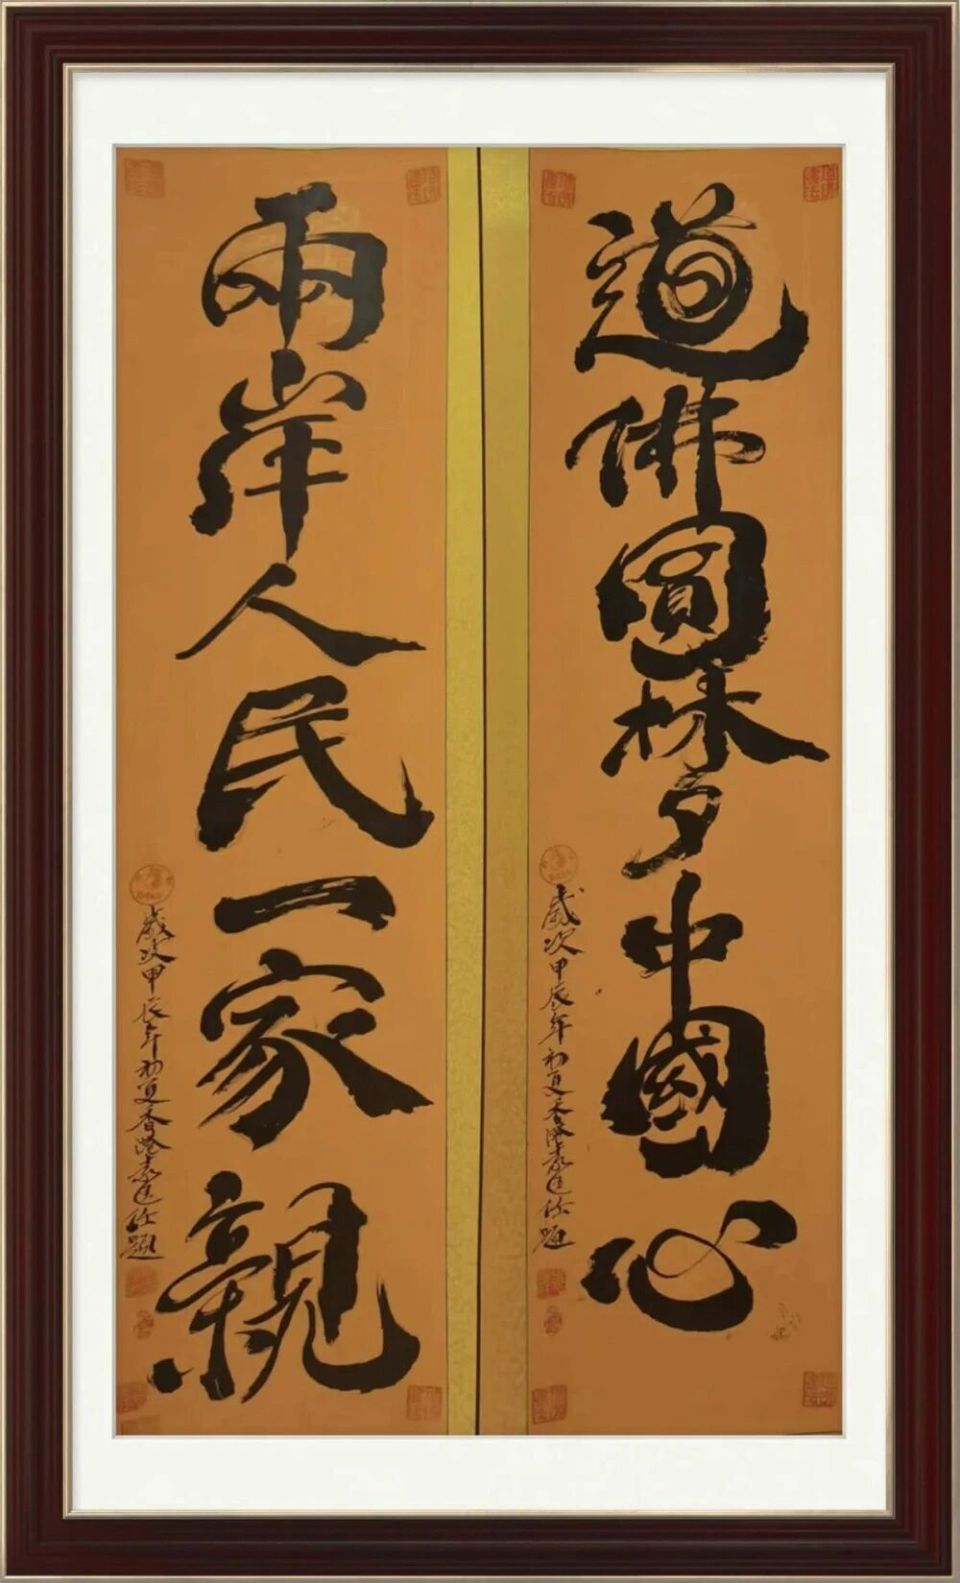 道佛圓梦中國心
歲次甲辰年初夏香港袁題
兩岸人民一家親
歲次甲辰年初夏香港袁題